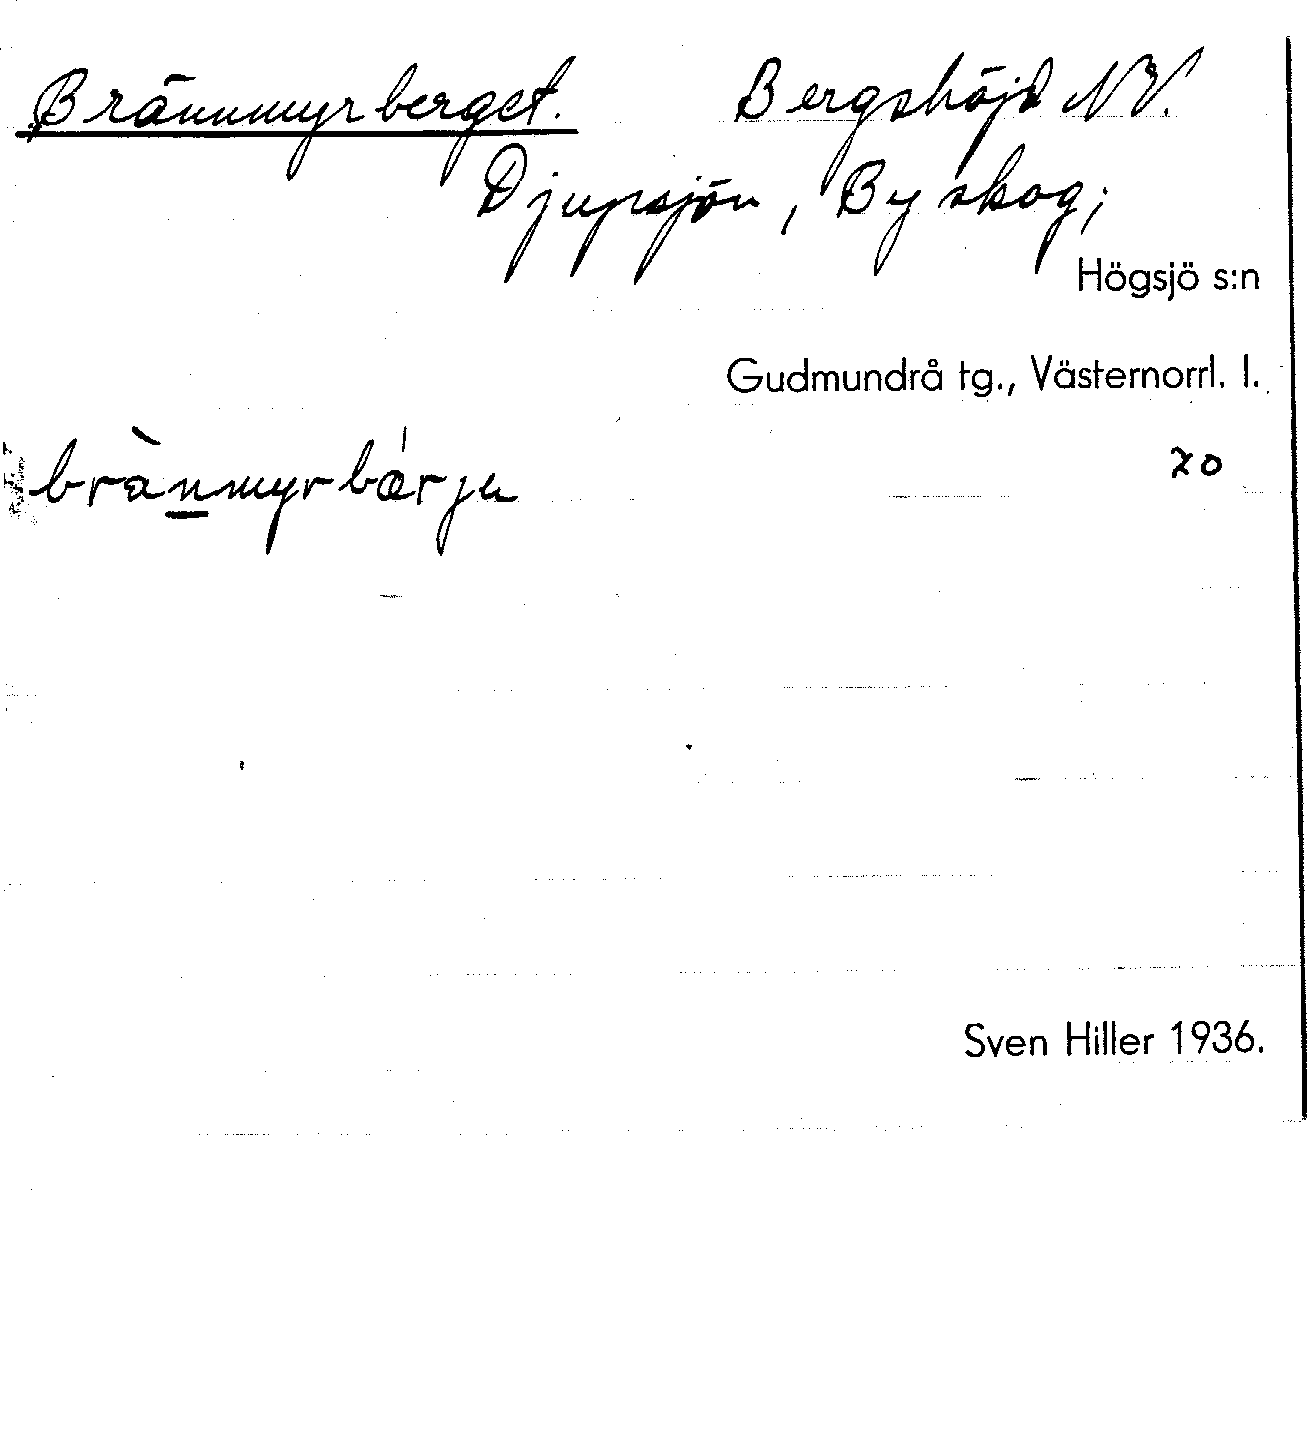 Brännmyrberget. Bergshöjd NV.
Djupsjön, By skog;
Högsjö s:n
Gudmundrå tg., Västernorrl. l.
70
brànmyrbærju
Sven Hiller 1936.